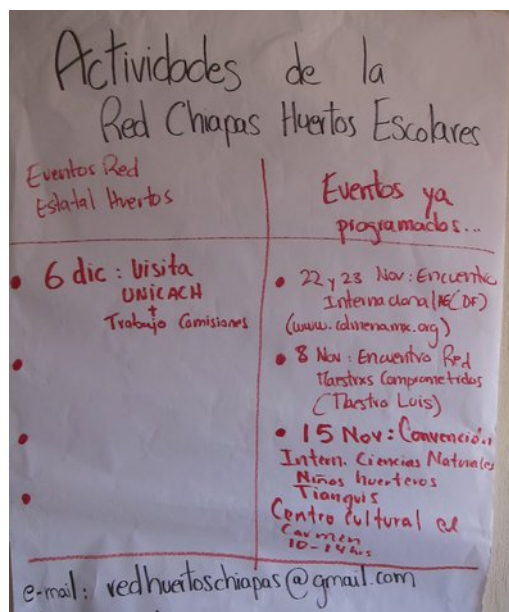 Actividades de la
Red Chiapas Huertos Escolares
Eventos Red
Estatal Huertos
6 dic: Visita
UNICACH
+
Trabajo Comisiones
Eventos ya
programados...
22 y 23 Nov: Encuentro
Internacional (DF)
(www.colmenamx.org)
8 Nov: Encuentro Red
Maestrxs Comprometidos
(Maestro Luis)
15 Nov: Convención
Intern. Ciencias Naturales
Niños huerteros
Tianguis
Centro Cultural el
Carmen
10-14hrs
e-mail: redhuertoschiapas@gmail.com